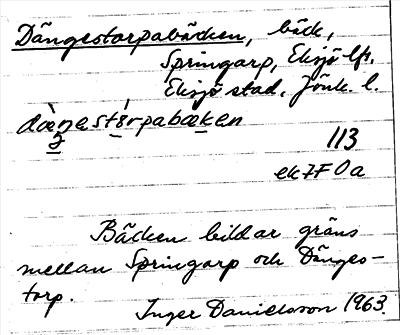 Dängestorpabäcken, bäck,
Springarp, Eksjö lfs.
Eksjö stad, Jönk. l.
113
ek7F0a
Bäcken bildar gräns
mellan Springarp och Dänges-
torp.
Inger Danielsson 1963.